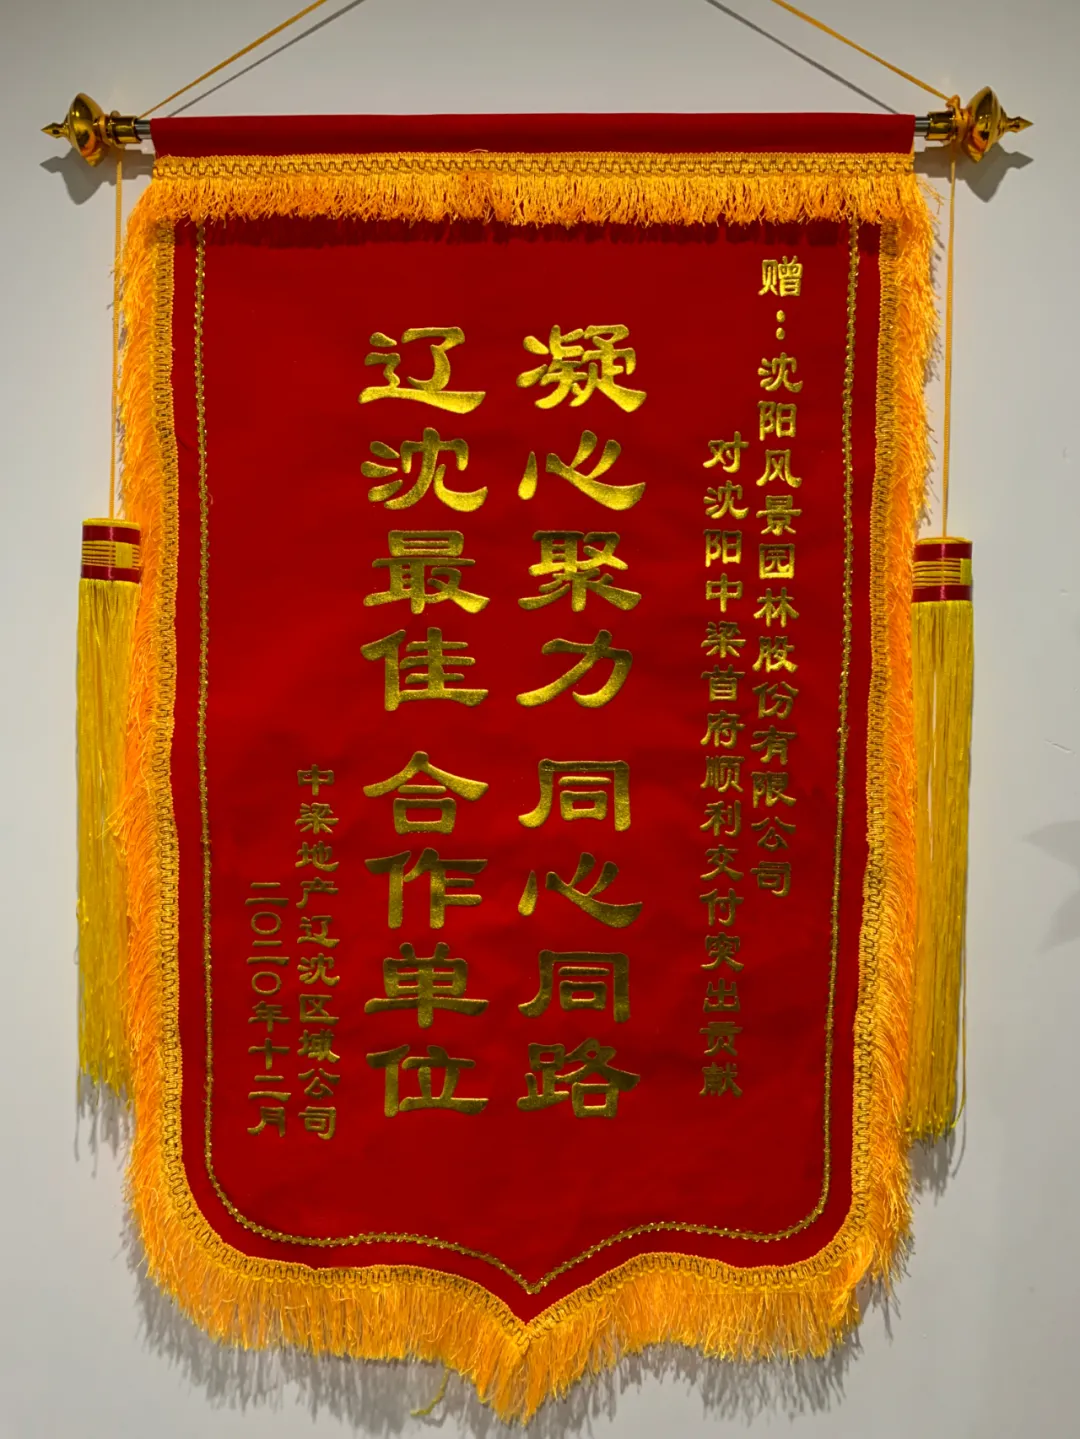 赠：沈阳风景园林股份有限公司
对沈阳中梁首府顺利交付突出贡献
凝心聚力 同心同路
辽沈最佳 合作单位
中梁地产辽沈区域公司
二〇二〇年十二月